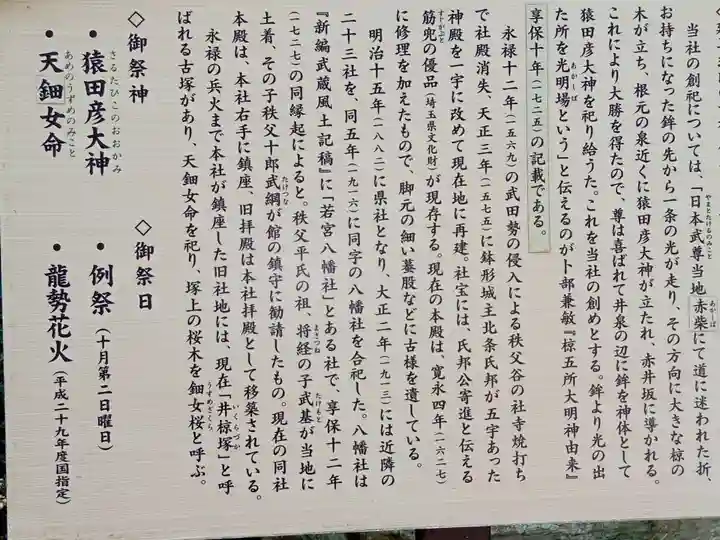 当社の創祀については、「日本武尊当地赤柴にて道に迷われた折、
お持ちになった鉾の先から一条の光が走り、その方向に大きな椋の
木が立ち、根元の泉近くに猿田彦大神が立たれ、赤井坂に導かれる。
これにより大勝を得たので、尊は喜ばれて井泉の辺に鉾を神体として
猿田彦大神を祀り給うた。これを当社の創めとする。鉾より光の出
た所を光明場という」と伝えるのが卜部兼敏『椋五所大明神由来』
享保十年(一七二五)の記載である。
永禄十二年(一五六九)の武田勢の侵入による秩父谷の社寺焼打ち
で社殿消失、天正三年(一五七五)に鉢形城主北条氏邦が五宇あった
神殿を一宇に改めて現在地に再建。社宝には、氏邦公寄進と伝える
筋兜の優品(埼玉県文化財)が現存する。現在の本殿は、寛永四年(一六二七)
に修理を加えたもので、脚元の細い蟇股などに古様を遺している。
明治十五年(一八八二)に県社となり、大正二年(一九一三)には近隣の
二十三社を、同五年(一九一六)に同字の八幡社を合祀した。八幡社は
『新編武蔵風土記稿』に「若宮八幡社」とある社で、享保十二年
(一七二七)の同縁起によると。秩父平氏の祖、将経の子武基が当地に
土着、その子秩父十郎武綱が館の鎮守に勧請したもの。現在の同社
本殿は、本社右手に鎮座、旧拝殿は本社拝殿として移築されている。
永禄の兵火まで本社が鎮座した旧社地には、現在「井椋塚」と呼
ばれる古塚があり、天鈿女命を祀り、塚上の桜木を鈿女桜と呼ぶ。
◇御祭神
・猿田彦大神
・天鈿女命
◇御祭日
・例祭(十月第二日曜日)
・龍勢花火(平成二十九年度国指定)
やまとたけるのみこと
あかしば
あかしば
すじかぶと
まさつね
たけもと
たけつな
いくらづか
うずめざくら
さるたひこのおおかみ
あめのうずめのみこと